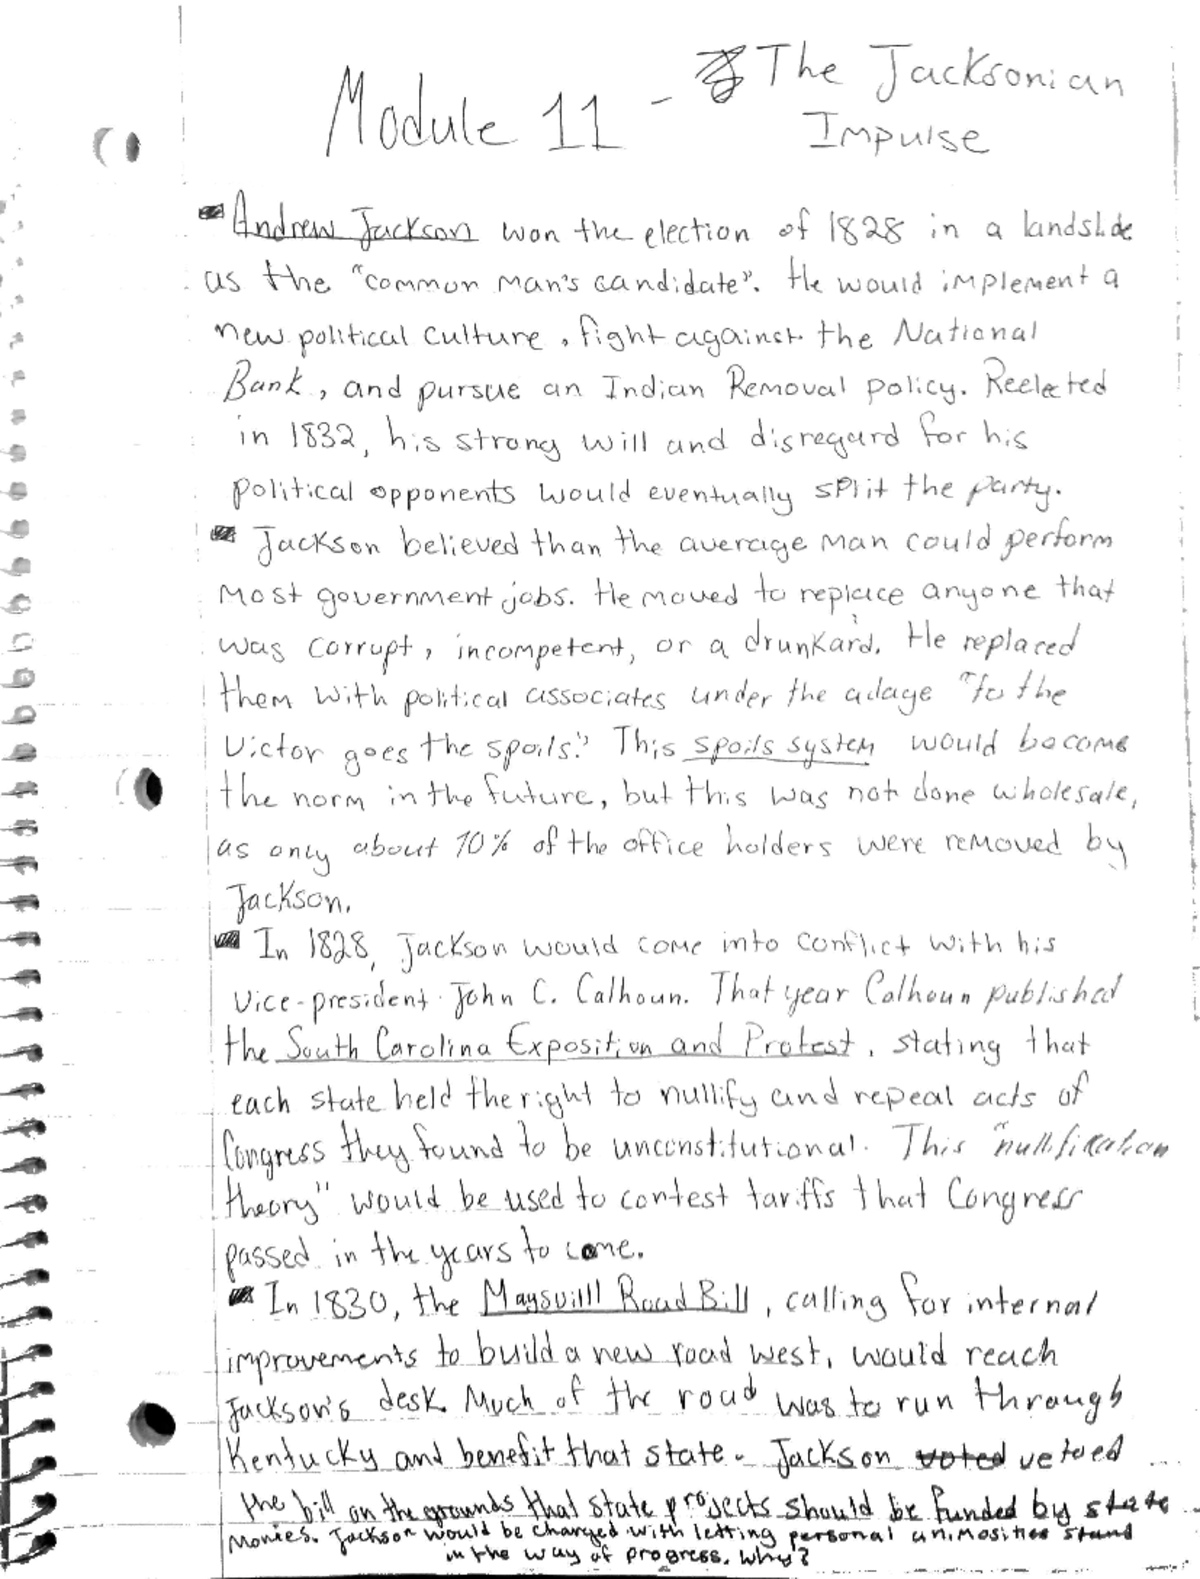 Module 11 - The Jacksonian
Impulse
Andrew Jackson won the election of 1828 in a landslide
as the "common man's candidate". He would implement a
new political culture, fight against the National
Bank, and pursue an Indian Removal policy. Reelected
in 1832, his strong will and disregard for his
political opponents would eventually split the party.
Jackson believed than the average man could perform
most government jobs. He moved to replace anyone that
was corrupt, incompetent, or a drunkard. He replaced
them with political associates under the adage "to the
victor goes the spoils." This spoils system would become
the norm in the future, but this was not done wholesale,
as only about 10% of the office holders were removed by
Jackson.
In 1828, Jackson would come into conflict with his
vice-president John C. Calhoun. That year Calhoun published
the South Carolina Exposition and Protest, stating that
each state held the right to nullify and repeal acts of
Congress they found to be unconstitutional. This "nullification
theory" would be used to contest tariffs that Congress
passed in the years to come.
In 1830, the Maysvilll Road Bill, calling for internal
improvements to build a new road west, would reach
Jackson's desk. Much of the road was to run through
Kentucky and benefit that state. Jackson voted vetoed
the bill on the grounds that state projects should be funded by state
monies. Jackson would be charged with letting personal animosities stand
in the way of progress. Why?